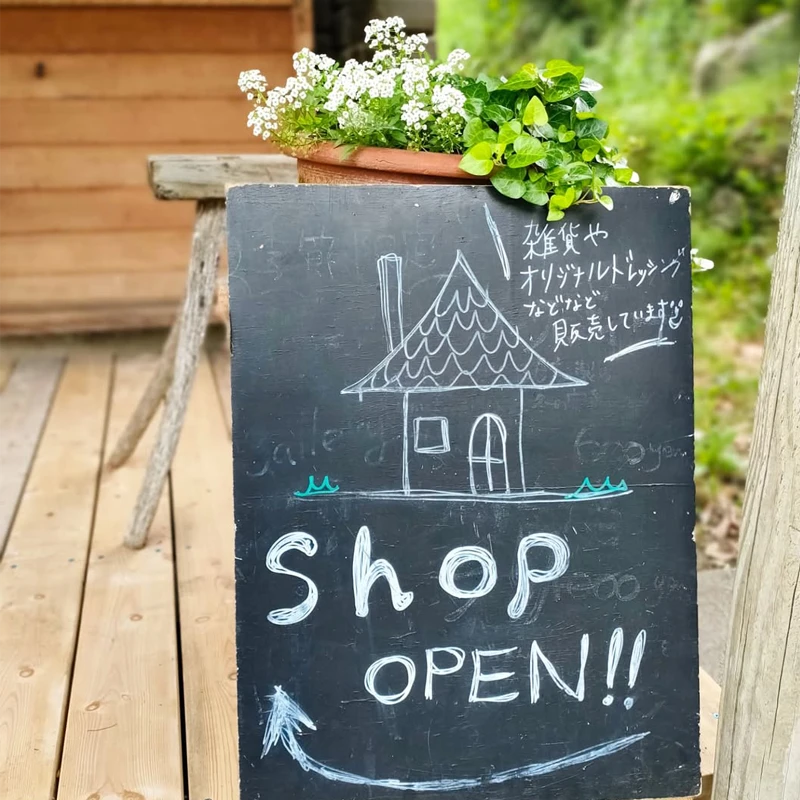 雑貨や
オリジナルドレッシング
などなど
販売しています
Shop
OPEN!!